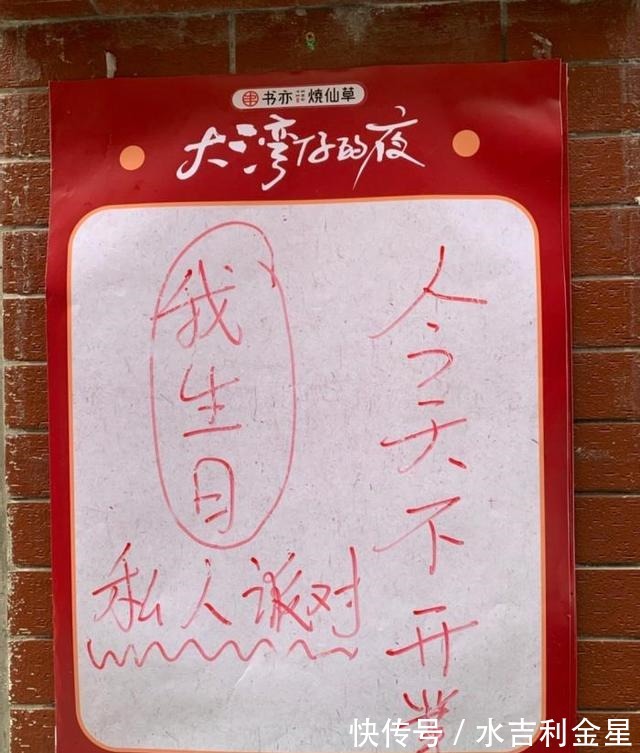 书亦烧仙草
大湾仔的夜
今天不开业
我生日
私人派对
快传号/水吉利金星